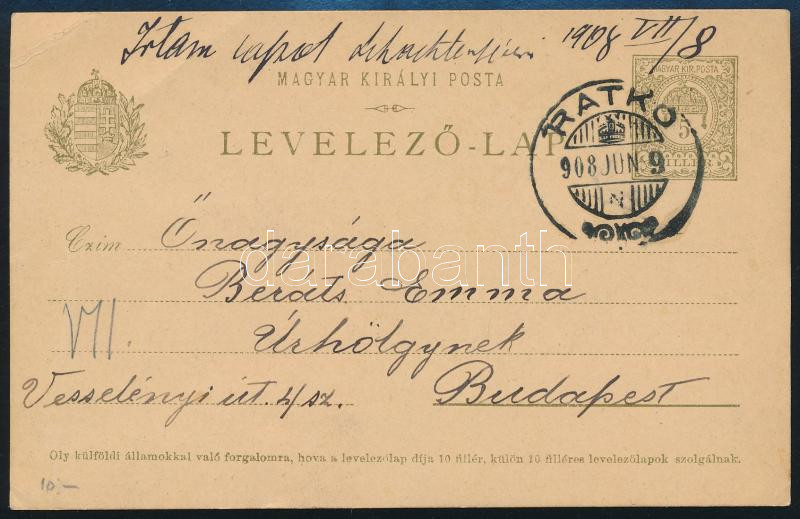 Irtam lapot 1908 VII/8
MAGYAR KIRÁLYI POSTA
MAGYAR KIR. POSTA
5
FILLÉR
LEVELEZŐ-LAP
RATKÓ
908 JUN 9
N
Czim Őnagysága
Beráts Emma
VII. Úrhölgynek
Vesselényi út. 4/sz. Budapest
darabanth
Oly külföldi államokkal való forgalomra, hova a levelezőlap díja 10 fillér, külön 10 filléres levelezőlapok szolgálnak.
10.-